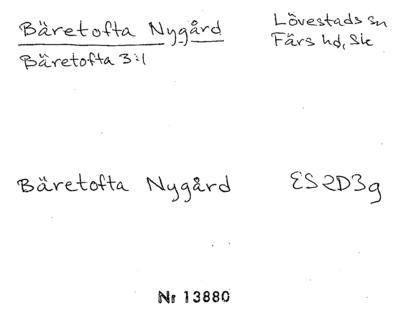 Bäretofta Nygård
Lövestads sn
Färs hd, Sk
Bäretofta 3:1
Bäretofta Nygård
ES2D3g
Nr 13880